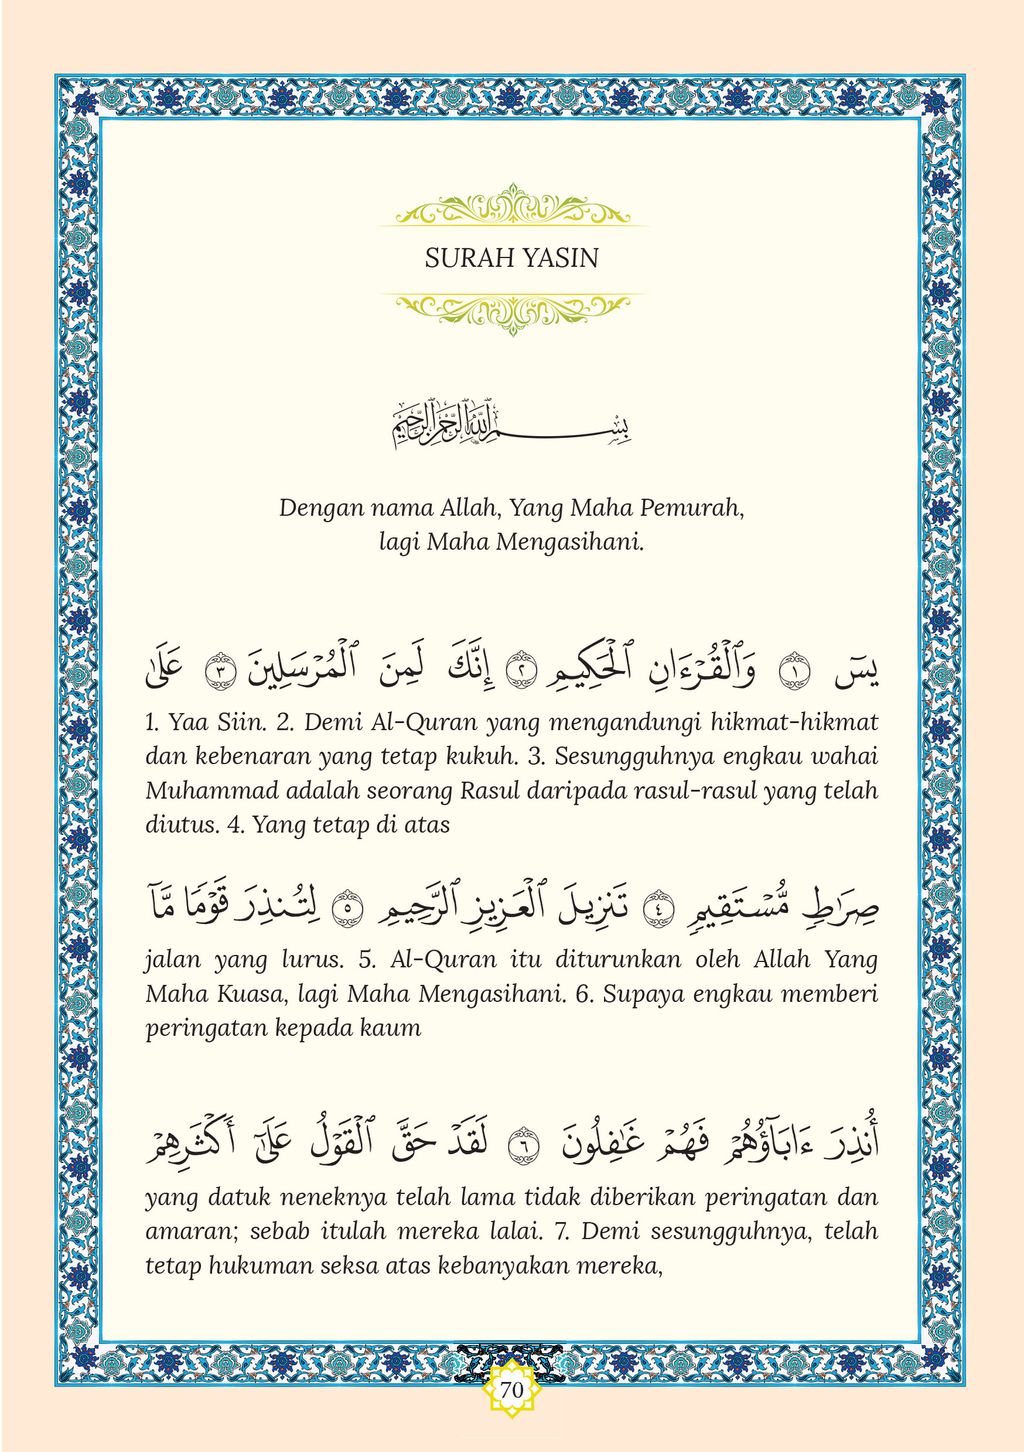 SURAH YASIN
بِسْمِ ٱللَّهِ ٱلرَّحْمَٰنِ ٱلرَّحِيمِ
Dengan nama Allah, Yang Maha Pemurah,
lagi Maha Mengasihani.
يسٓ ١ وَٱلْقُرْءَانِ ٱلْحَكِيمِ ٢ إِنَّكَ لَمِنَ ٱلْمُرْسَلِينَ ٣ عَلَىٰ
1. Yaa Siin. 2. Demi Al-Quran yang mengandungi hikmat-hikmat
dan kebenaran yang tetap kukuh. 3. Sesungguhnya engkau wahai
Muhammad adalah seorang Rasul daripada rasul-rasul yang telah
diutus. 4. Yang tetap di atas
صِرَٰطٍ مُّسْتَقِيمٍ ٤ تَنزِيلَ ٱلْعَزِيزِ ٱلرَّحِيمِ ٥ لِتُنذِرَ قَوْمًا مَّآ
jalan yang lurus. 5. Al-Quran itu diturunkan oleh Allah Yang
Maha Kuasa, lagi Maha Mengasihani. 6. Supaya engkau memberi
peringatan kepada kaum
أُنذِرَ ءَابَآؤُهُمْ فَهُمْ غَٰفِلُونَ ٦ لَقَدْ حَقَّ ٱلْقَوْلُ عَلَىٰٓ أَكْثَرِهِمْ
yang datuk neneknya telah lama tidak diberikan peringatan dan
amaran; sebab itulah mereka lalai. 7. Demi sesungguhnya, telah
tetap hukuman seksa atas kebanyakan mereka,
70